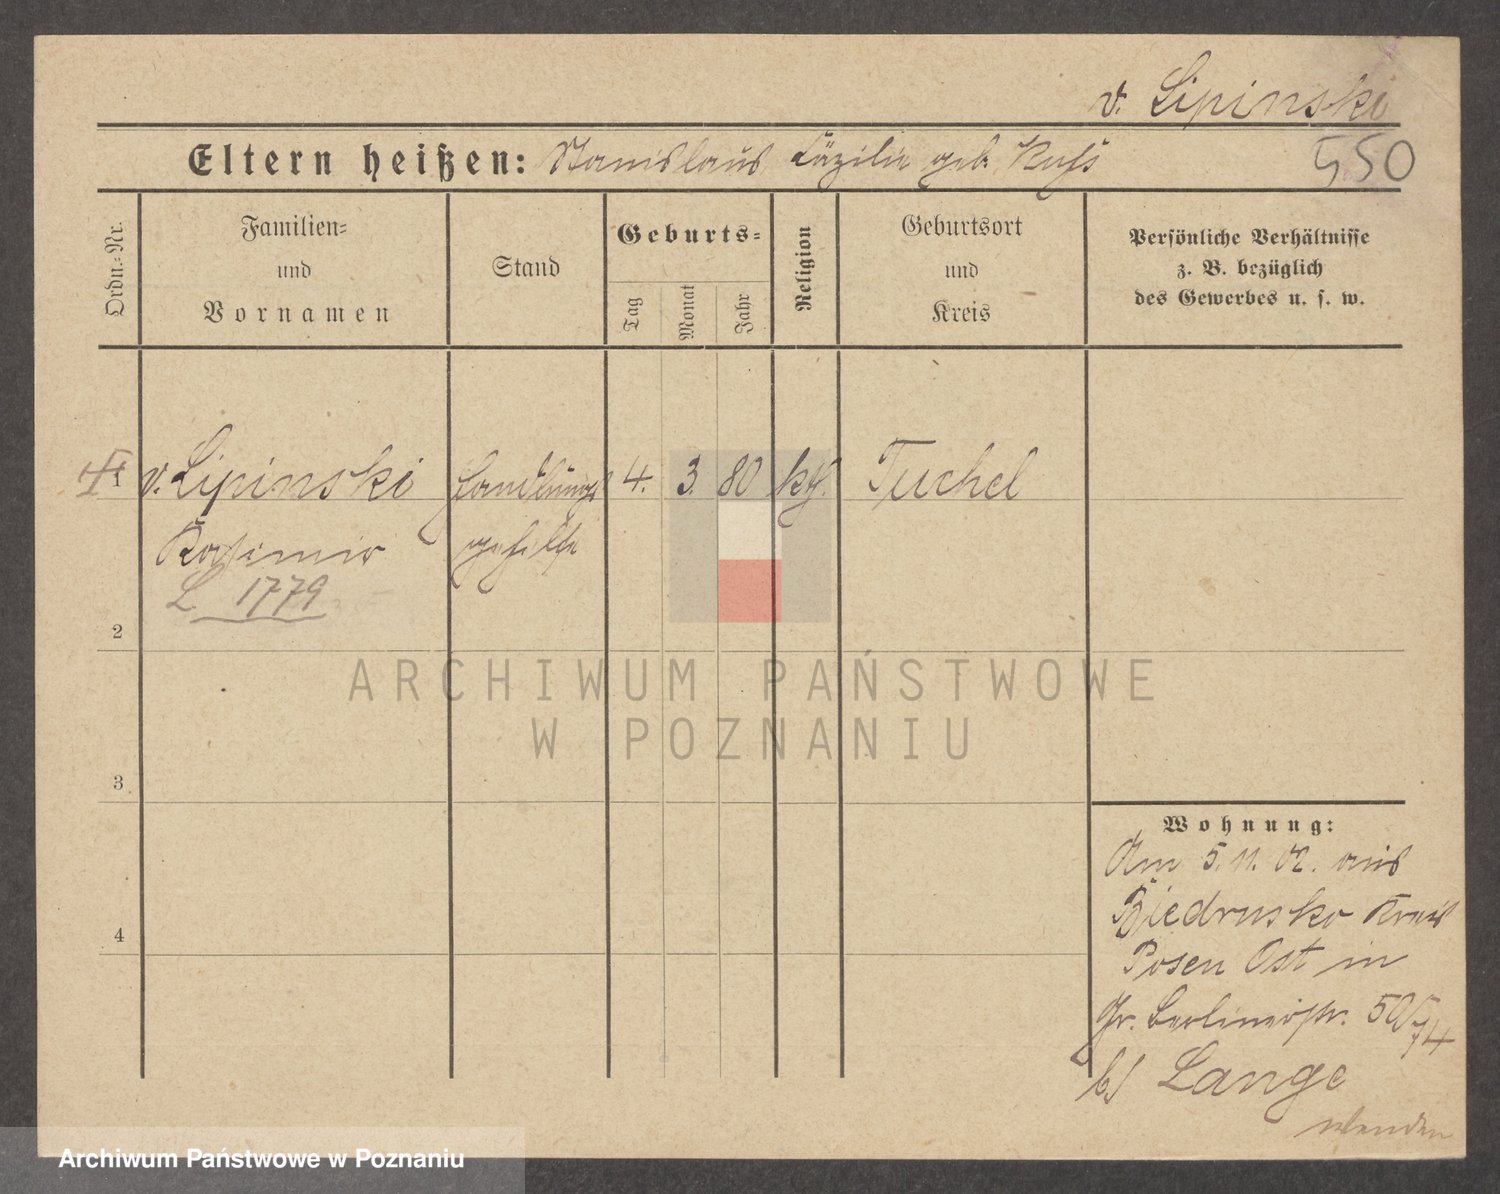 v. Lipinski
Eltern heißen: Stanislaus Cäzilie geb. Russ
550
Ordn.-Nr.
Familien-
und
Vornamen
Stand
Geburts-
Tag
Monat
Jahr
Religion
Geburtsort
und
Kreis
Persönliche Verhältnisse
z. B. bezüglich
des Gewerbes u. s. w.
1 v. Lipinski Handlungs 4. 3. 80 kth. Tuchel
Kasimir gehilfe
L 1779
2
3
4
Wohnung:
Am 5. 11. 02. aus
Biedrusko Kreis
Posen Ost in
Gr. Berlinerstr. 50
b/ Lange
wenden
ARCHIWUM PAŃSTWOWE
W POZNANIU
Archiwum Państwowe w Poznaniu